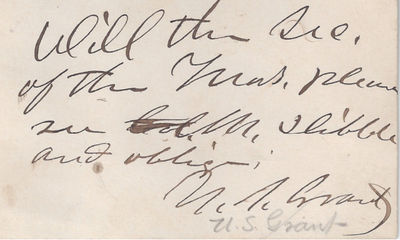 Will the Sec.
of the Treas. please
see Col. M. Slibble
and oblige;
U. S. Grant
U.S. Grant